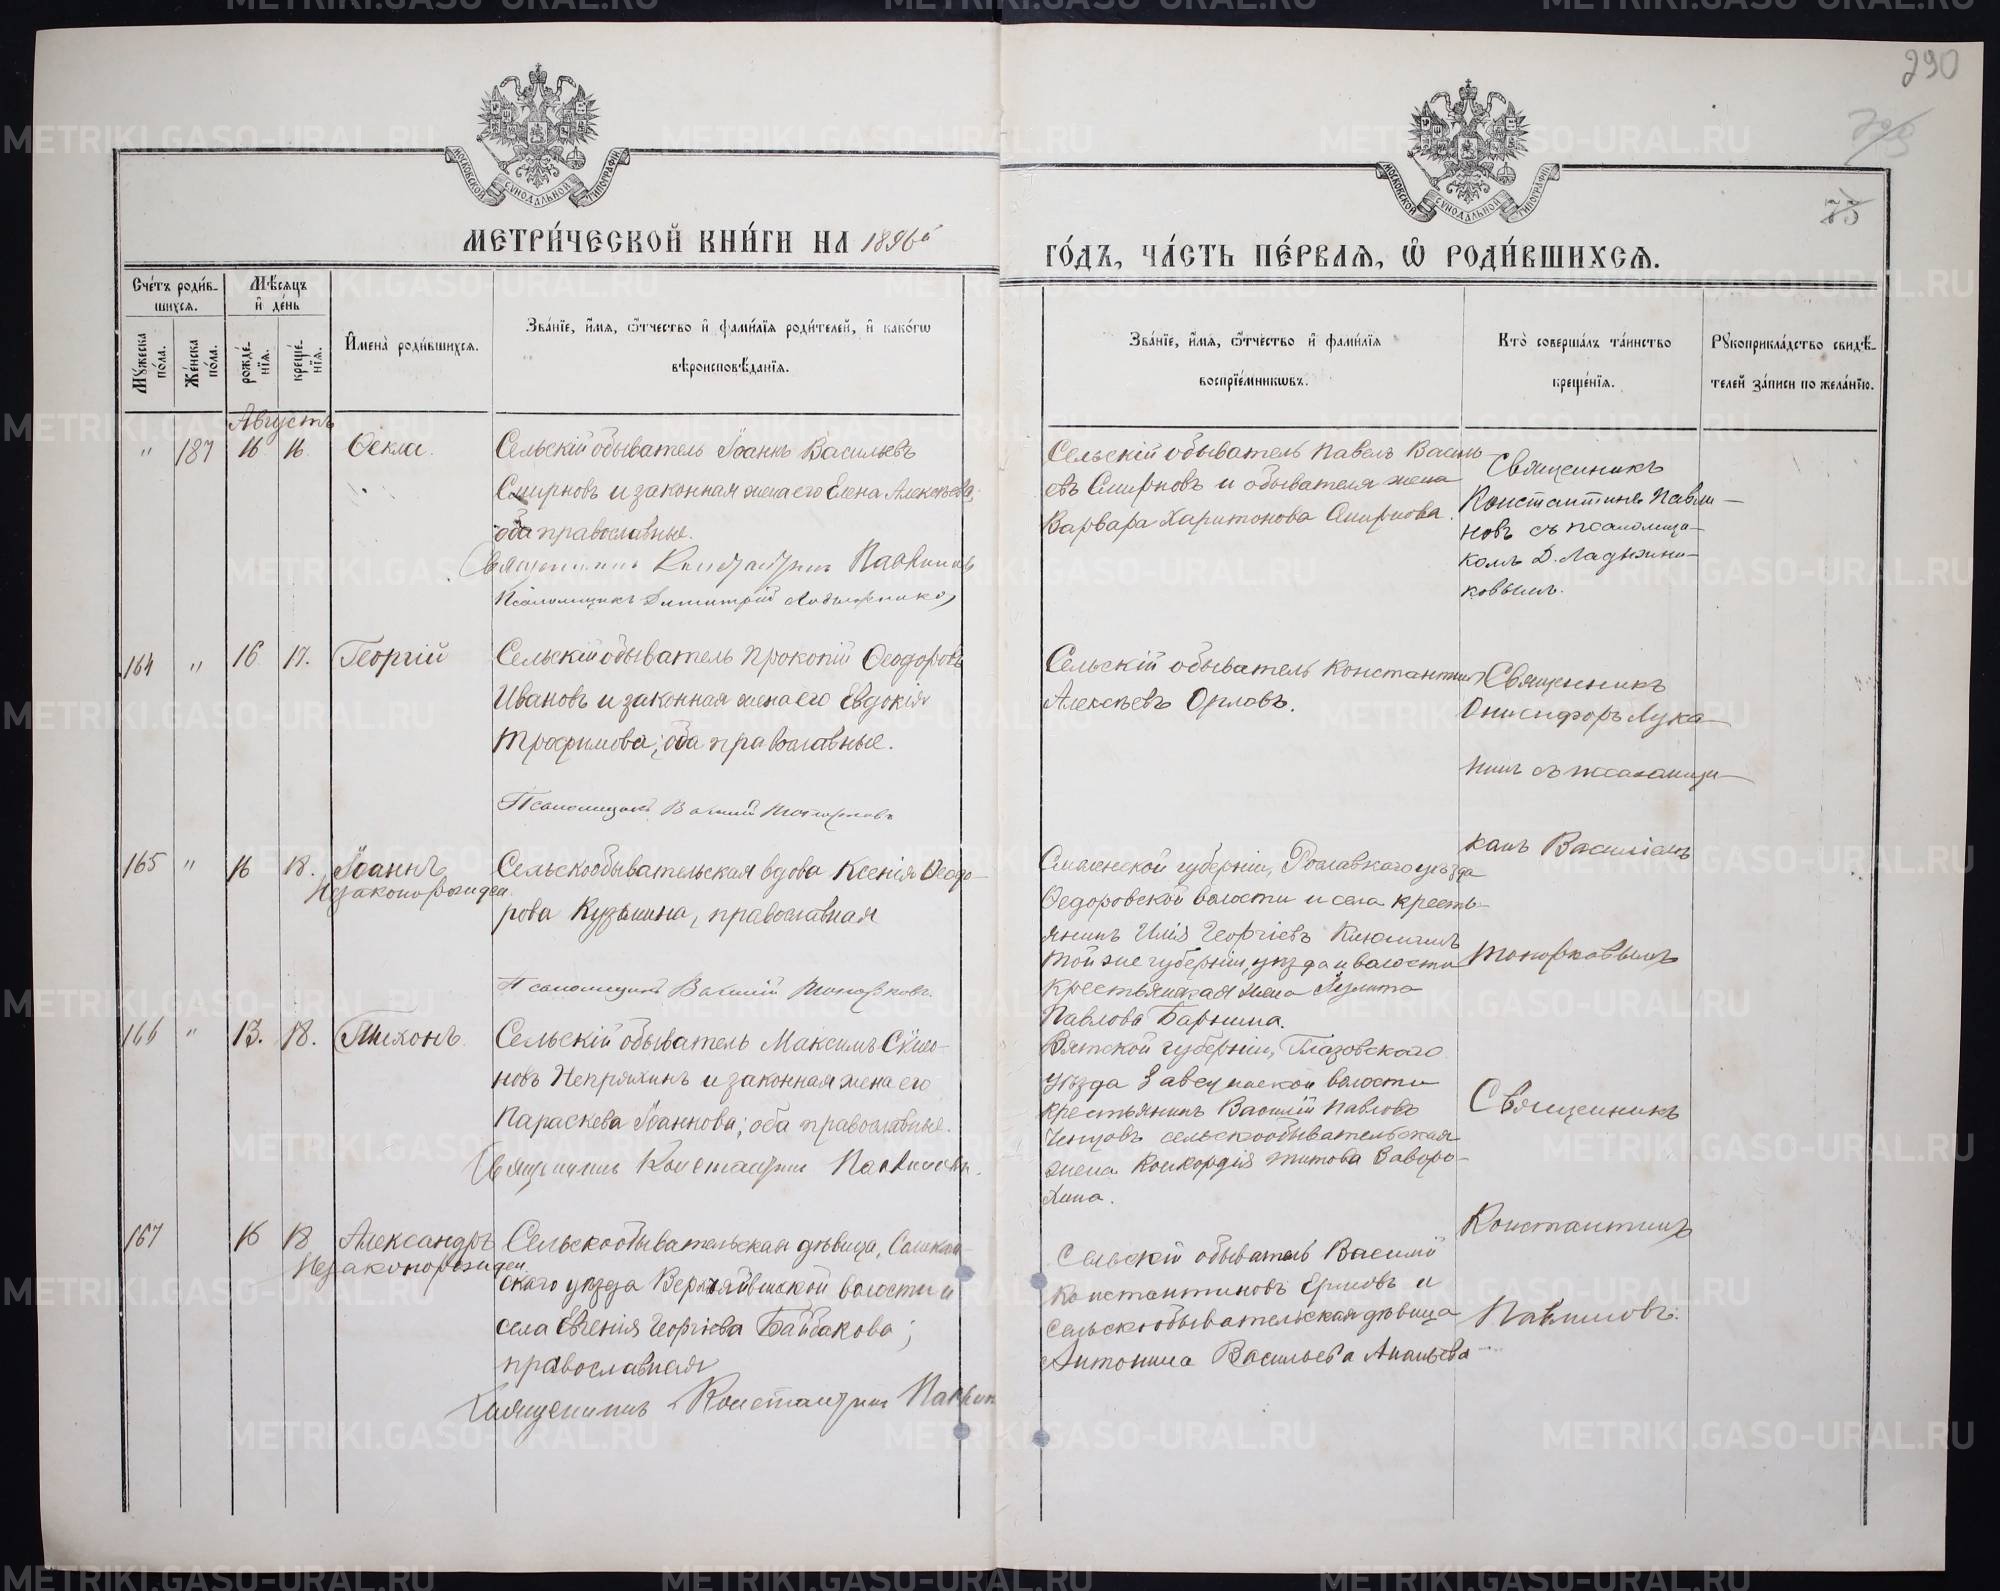 290
75
МОСКОВСКОЙ СѴНОДАЛЬНОЙ ТИПОГРАФІИ
МОСКОВСКОЙ СѴНОДАЛЬНОЙ ТИПОГРАФІИ
МЕТРИ́ЧЕСКОЙ КНИ́ГИ НА 1896й
ГО́ДЪ, ЧА́СТЬ ПЕ́РВАЯ, Ѽ РОДИ́ВШИХСЯ.
Сче́тъ роди́в-
шихся.
Мѣ́сяцъ
и҆ де́нь
Мꙋ́жеска
по́ла.
Же́нска
по́ла.
рожде́-
нїя.
креще́-
нїя.
И҆мена̀ роди́вшихся.
Зва́нїе, и҆́мя, ѻ҆́тчество и҆ фами́лїя роди́телей, и҆ како́гѡ
вѣроисповѣ́данїя.
Зва́нїе, и҆́мя, ѻ҆́тчество и҆ фами́лїя
воспрїе́мникѡвъ.
Кто̀ соверша́лъ та́инство
креще́нїя.
Рꙋкоприкла́дство свидѣ́-
телей за́писи по жела́нїю.
Августъ
" 187 16 16. Ѳекла.
Сельскій обыватель Іоаннъ Васильевъ
Смирновъ и законная жена его Елена Алексѣева,
оба православные.
Священникъ Константинъ Павлиновъ
Псаломщикъ Димитрій Ладыжниковъ
Сельскій обыватель Павелъ Василь-
евъ Смирновъ и обывателя жена
Варвара Харитонова Смирнова.
Священникъ
Константинъ Павли-
новъ съ псаломщи-
комъ Д. Ладыжни-
ковымъ.
164 " 16 17. Георгій
Сельскій обыватель Прокопій Ѳеодоровъ
Ивановъ и законная жена его Евдокія
Трофимова; оба православные.
Псаломщикъ Василій Топорковъ
Сельскій обыватель Константинъ
Алексѣевъ Орловъ.
Священникъ
Онисифоръ Лука-
нинъ съ псаломщи-
комъ Василіемъ
Топорковымъ
165 " 16 18. Іоаннъ
Незаконорожден.
Сельскообывательская вдова Ксенія Ѳеодо-
рова Кузьмина, православная
Псаломщикъ Василій Топорковъ.
Смоленской губерніи, Рославскаго уѣзда
Ѳедоровской волости и села кресть-
янинъ Илія Георгіевъ
той же губерніи, уѣзда и волости
крестьянская жена Іулита
Павлова
166 " 13. 18. Тихонъ.
Сельскій обыватель Максимъ Сѷмео-
новъ Непряхинъ и законная жена его
Параскева Іоаннова; оба православные.
Священникъ Константинъ Павлиновъ.
Вятской губерніи, Глазовскаго
уѣзда волости
крестьянинъ Василій Павловъ
Ченцовъ сельскообывательская
жена Конкордія Титова Заворо-
хина.
Священникъ
Константинъ
Павлиновъ.
167 16 18 Александръ
Незаконорожден.
Сельскообывательская дѣвица, Соликам-
скаго уѣзда Верхъяйвинской волости и
села Евгенія Георгіева Байбакова;
православная
Священникъ Константинъ Павлин
Сельскій обыватель Василій
Константиновъ Ершовъ и
сельскообывательская дѣвица
Антонина Васильева Ананьева
METRIKI.GASO-URAL.RU